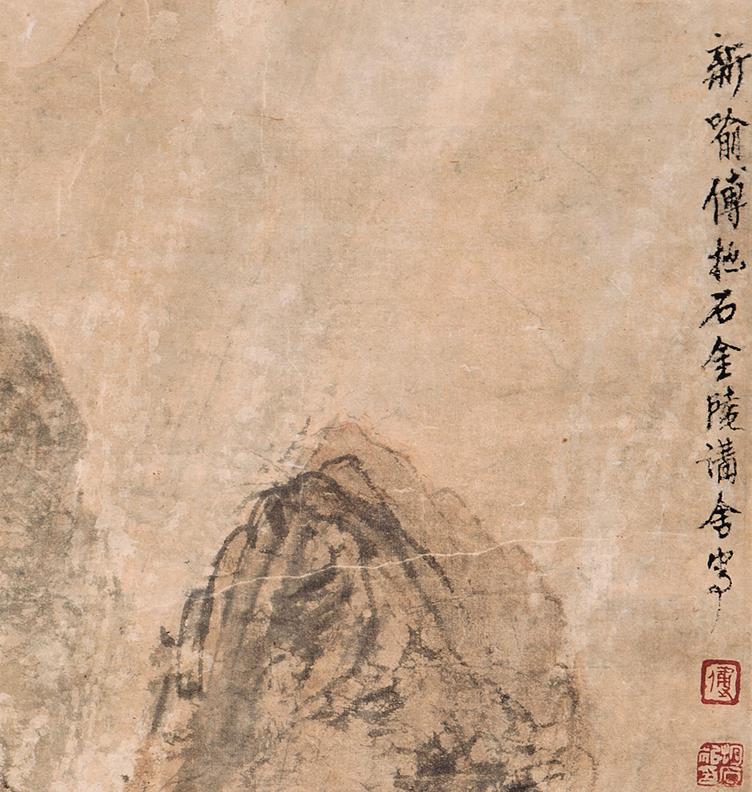 新喻傅抱石金陵講舍寫
傅